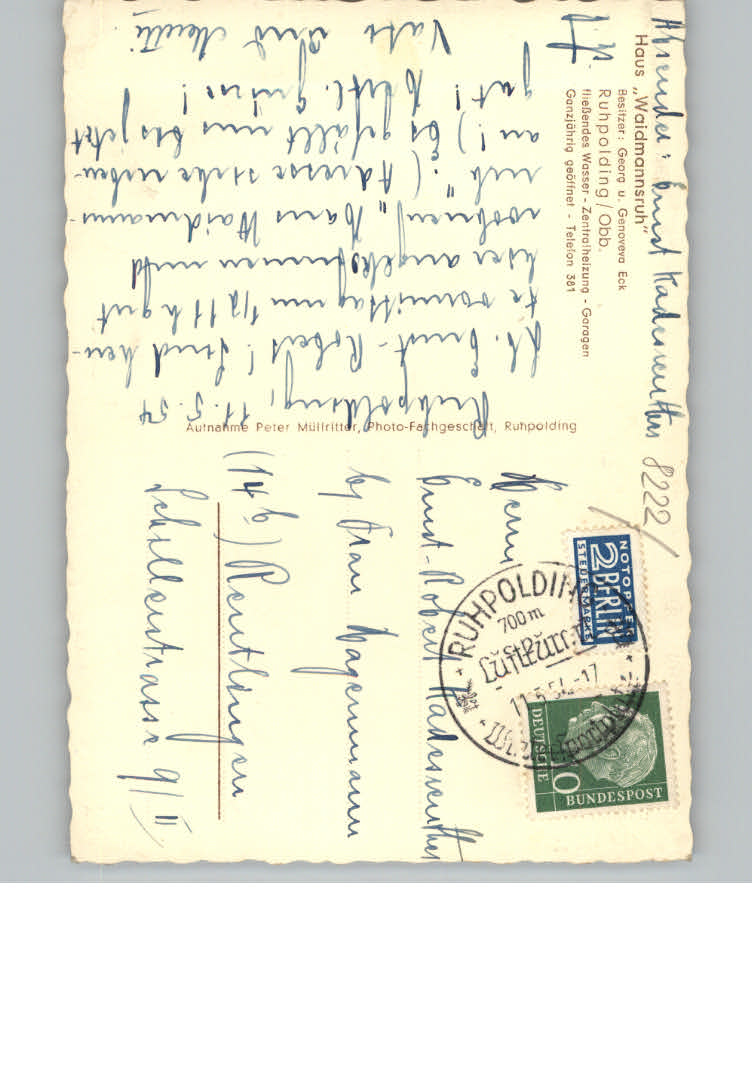 Absender: Ernst Kadesreuther
Haus „Waidmannsruh"
Besitzer: Georg u. Genoveva Eck
Ruhpolding/Obb.
fließendes Wasser - Zentralheizung - Garagen
Ganzjährig geöffnet - Telefon 381
Ruhpolding, 11.5.54
Lb. Ernst-Robert! Sind heu-
te vormittag um 1/2 11 h gut
hier angekommen und
wohnen „Haus Waidmanns-
ruh". (Adresse siehe neben-
an!) Es gefällt uns bis jetzt
gut! Herzl. Grüsse!
Vati und Mutti
Aufnahme Peter Müllritter, Photo-Fachgeschäft, Ruhpolding
8222/
NOTOPFER
2 BERLIN
STEUERMARKE
DEUTSCHE
BUNDESPOST
RUHPOLDING
700 m
11.5.54-17
Herrn
Ernst-Robert Kadesreuther
b/ Frau Wagenmann
(14 b) Reutlingen
Schillerstrasse 9/II